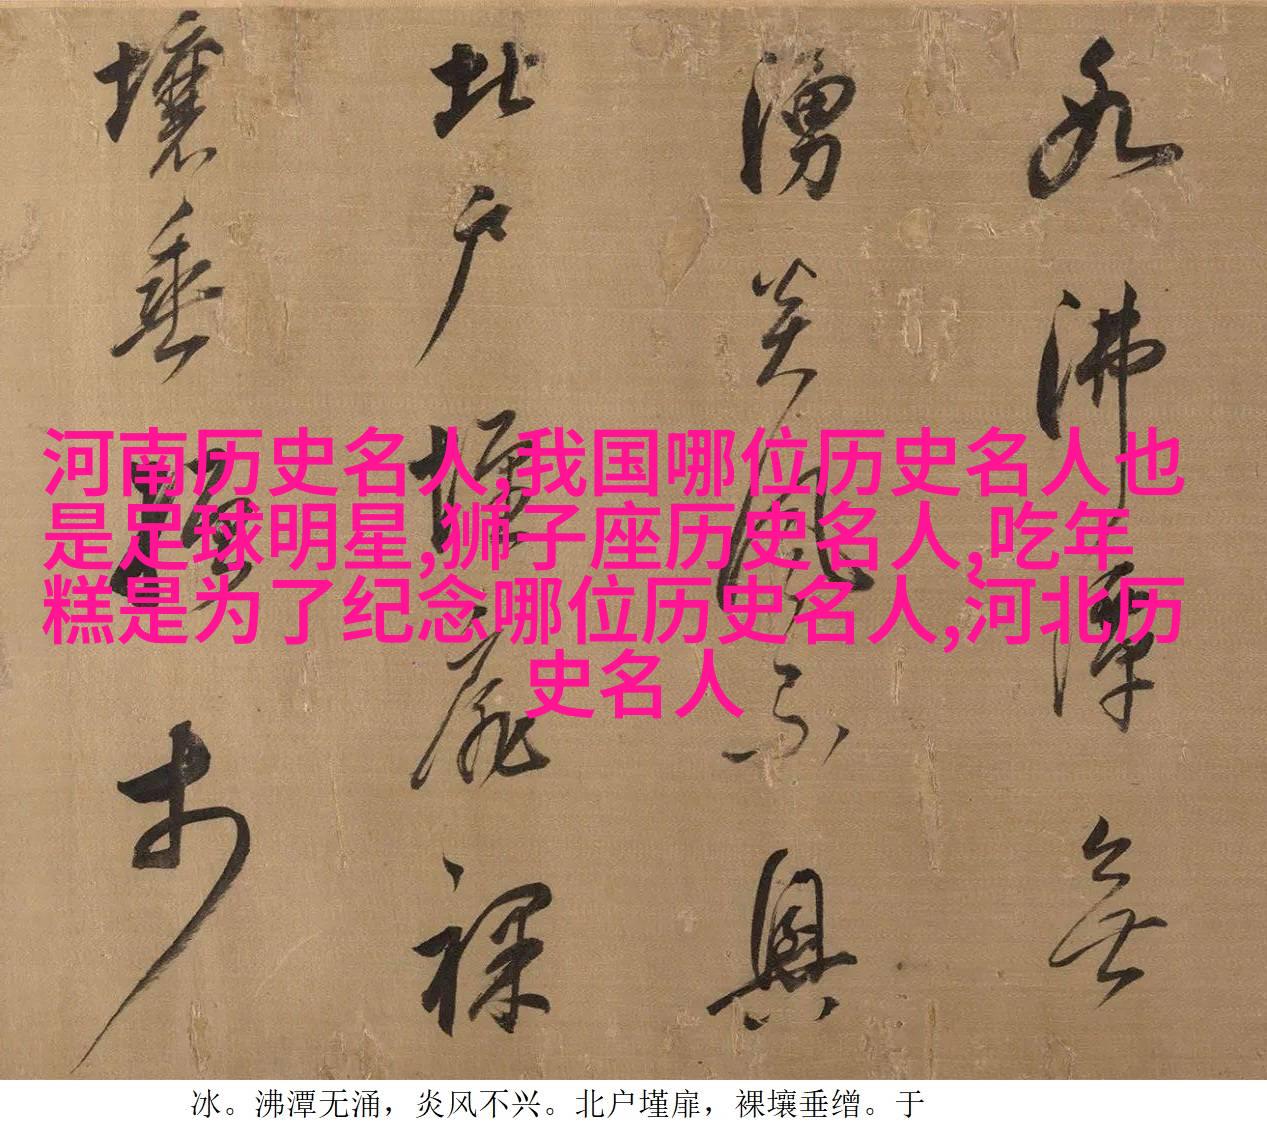 冰沸潭无
湧炎风不興
北户墐扉裸
壤垂繒于
河南历史名人,我国哪位历史名人也
是足球明星,狮子座历史名人,吃年
糕是为了纪念哪位历史名人,河北历
史名人
冰。沸潭无涌，炎风不兴。北户墐扉，裸壤垂缯。于